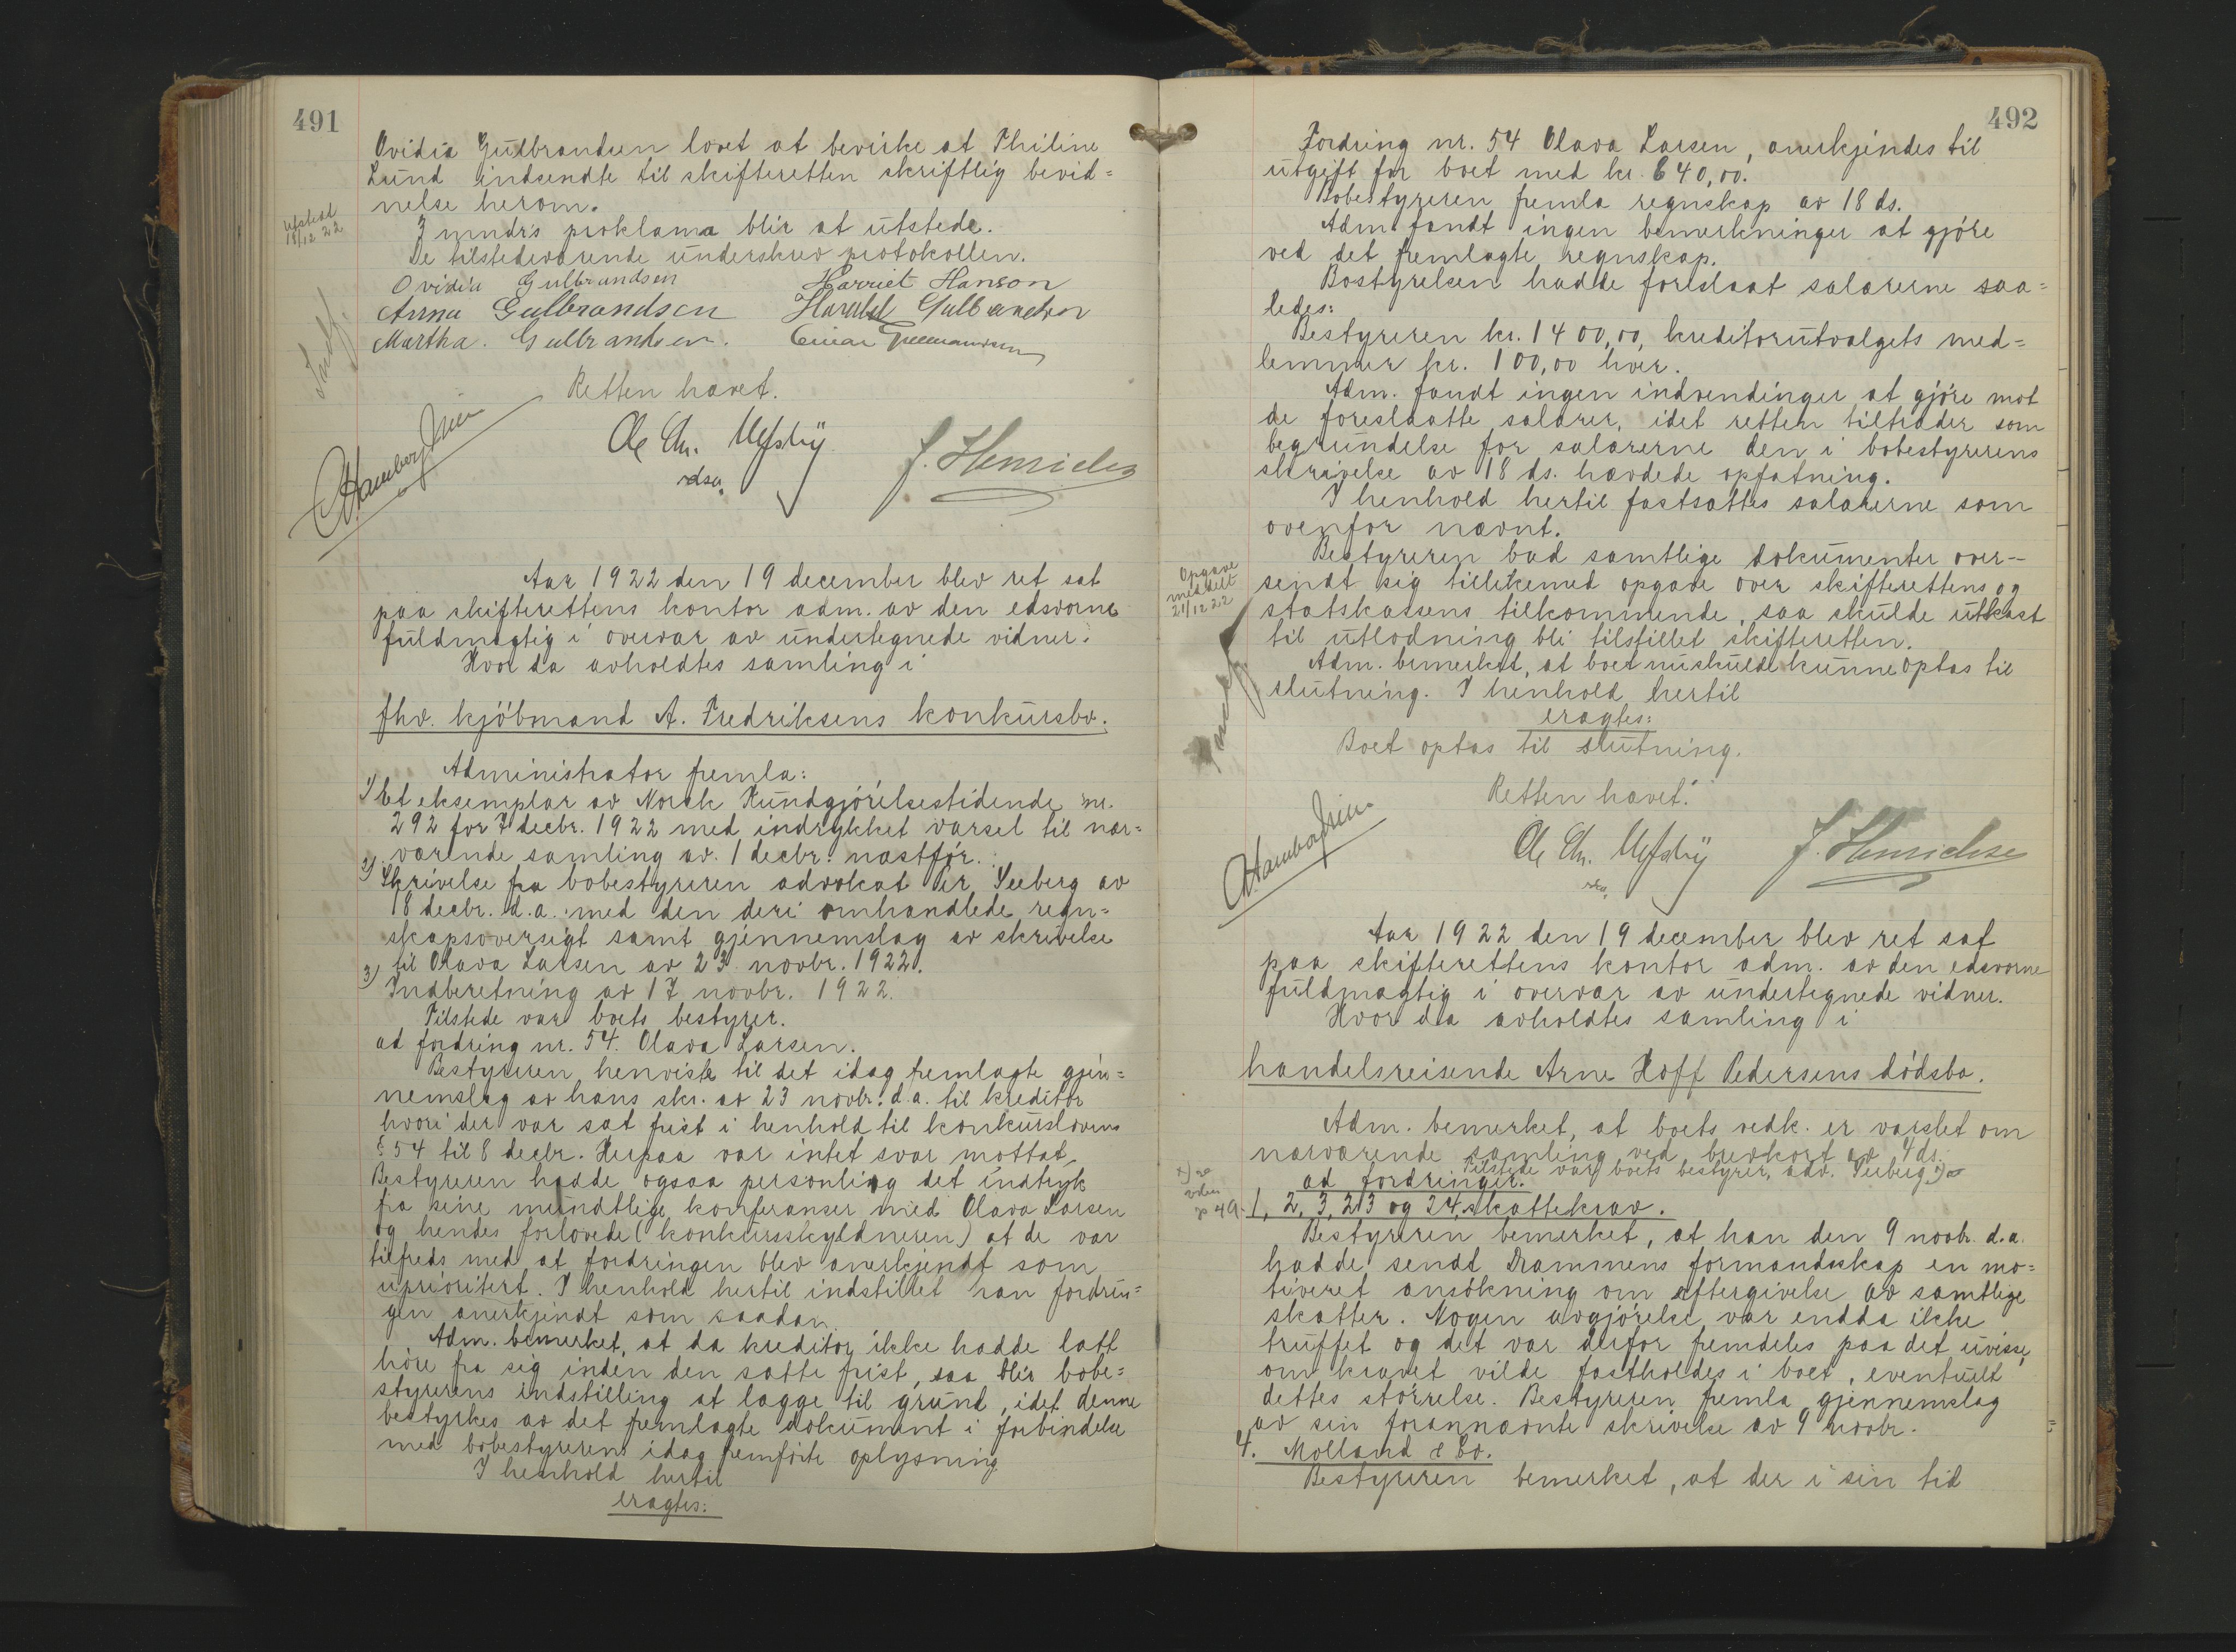 491
Ovidia Gulbrandsen lovet at bevirke at Thiline
Lund indsendte til skifteretten skriftlig bevid=
nelse herom.
Utstedt
18/12 22
3 mndrs proklama blir at utstede.
De tilstedeværende underskrev protokollen.
Ovidia Gulbrandsen
Harriet Hanson
Anna Gulbrandsen
Harald Gulbrandsen
Martha. Gulbrandsen.
Einar Gulbrandsen
Retten hævet.
J. Henrichs
Aar 1922 den 19 december blev ret sat
paa skifterettens kontor adm. av den edsvorne
fuldmægtig i overvær av undertegnede vidner.
Hvor da avholdtes samling i
fhv. kjöbmand A. Fredriksens konkursbo.
Administrator fremla:
1) Et eksemplar av Norsk Kundgjörelsestidende nr.
292 for 7 decbr. 1922 med indrykket varsel til nær=
værende samling av 1 decbr. næstför.
2) Skrivelse fra bobestyreren advokat Per Seeberg av
18 decbr. d.a. med den deri omhandlede regn=
skapsoversigt samt gjennemslag av skrivelse
til Olava Larsen av 23 novbr. 1922.
3) Indberetning av 17 novbr. 1922.
Tilstede var boets bestyrer.
ad fordring nr. 54. Olava Larsen.
Bestyreren henviste til det idag fremlagte gjen=
nemslag av hans skr. av 23 novbr. d.a. til kreditor
hvori der var sat frist i henhold til konkurslovens
§ 54 til 8 decbr. Herpaa var intet svar mottat.
Bestyreren hadde ogsaa personling det indtryk
fra sine mundtlige konferanser med Olava Larsen
og hendes forlovede (konkursskyldneren) at de var
tilfreds med at fordringen blev anerkjendt som
uprioritert. I henhold hertil indstillet han fordrin=
gen anerkjendt som saadan.
Adm. bemerket, at da kreditor ikke hadde latt
höre fra sig inden den satte frist, saa blir bobe=
styrerens indstilling at lægge til grund, idet denne
bestyrkes av det fremlagte dokument i forbindelse
med bobestyrerens idag fremförte oplysning
I henhold hertil
eragtes:
492
Fordring nr. 54 Olava Larsen, anerkjendes til
utgift for boet med kr. 640,00.
Bobestyreren fremla regnskap av 18 ds.
Adm. fandt ingen bemerkninger at gjöre
ved det fremlagte regnskap.
Bostyrelsen hadde foreslaat salærerne saa=
ledes:
Bestyreren kr. 1400,00, kreditorutvalgets med=
lemmer kr. 100,00 hver.
Adm. fandt ingen indvendinger at gjöre mot
de foreslaatte salærer, idet retten tiltræder som
begrundelse for salærerne den i bobestyrerens
skrivelse av 18 ds. hævdede opfatning.
I henhold hertil fastsattes salærerne som
ovenfor nævnt.
Opgave
meddelt
21/12 22
Bestyreren bad samtlige dokumenter over-
sendt sig tillikemed opgave over skifterettens og
statskassens tilkommende, saa skulde utkast
til utlodning bli tilstillet skifteretten.
Adm. bemerket, at boet nu skulde kunne optas til
slutning. I henhold hertil
eragtes:
Boet optas til slutning.
Retten hævet.
J. Henrichse
Aar 1922 den 19 december blev ret sat
paa skifterettens kontor adm. av den edsvorne
fuldmægtig i overvær av undertegnede vidner.
Hvor da avholdtes samling i
handelsreisende Arne Hoff Pedersens dödsbo.
Adm. bemerket, at boets vedk. er varslet om
nærværende samling ved brevkort av 4 ds.
Tilstede var boets bestyrer, adv. Seeberg.
ad fordringer.
1, 2, 3, 23 og 24, skattekrav.
Bestyreren bemerket, at han den 9 novbr. d.a.
hadde sendt Drammens formandsskap en mo=
tiveret ansökning om eftergivelse av samtlige
skatter. Nogen avgjörelse var endda ikke
truffet og det var derfor fremdeles paa det uvisse,
om kravet vilde fastholdes i boet, eventuelt
dettes störrelse. Bestyreren fremla gjennemslag
av sin forannævnte skrivelse av 9 novbr.
4. Molland & Co.
Bestyreren bemerket, at der i sin tid